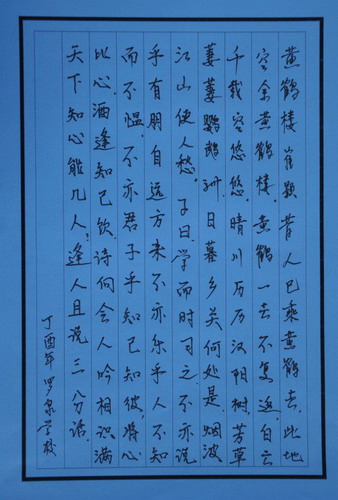 黄鹤楼崔颢昔人已乘黄鹤去。此地
空余黄鹤楼。黄鹤一去不复返,白云
千载空悠悠。晴川历历汉阳树,芳草
萋萋鹦鹉洲。日暮乡关何处是。烟波
江山使人愁。子曰。学而时习之不亦说
乎有朋自远方来不亦乐乎人不知
而不愠,不亦君子乎知己知彼,将心
比心,酒逢知己饮,诗向会人吟相识满
天下知心能几人?逢人且说三分话。
丁酉年罗泉学校